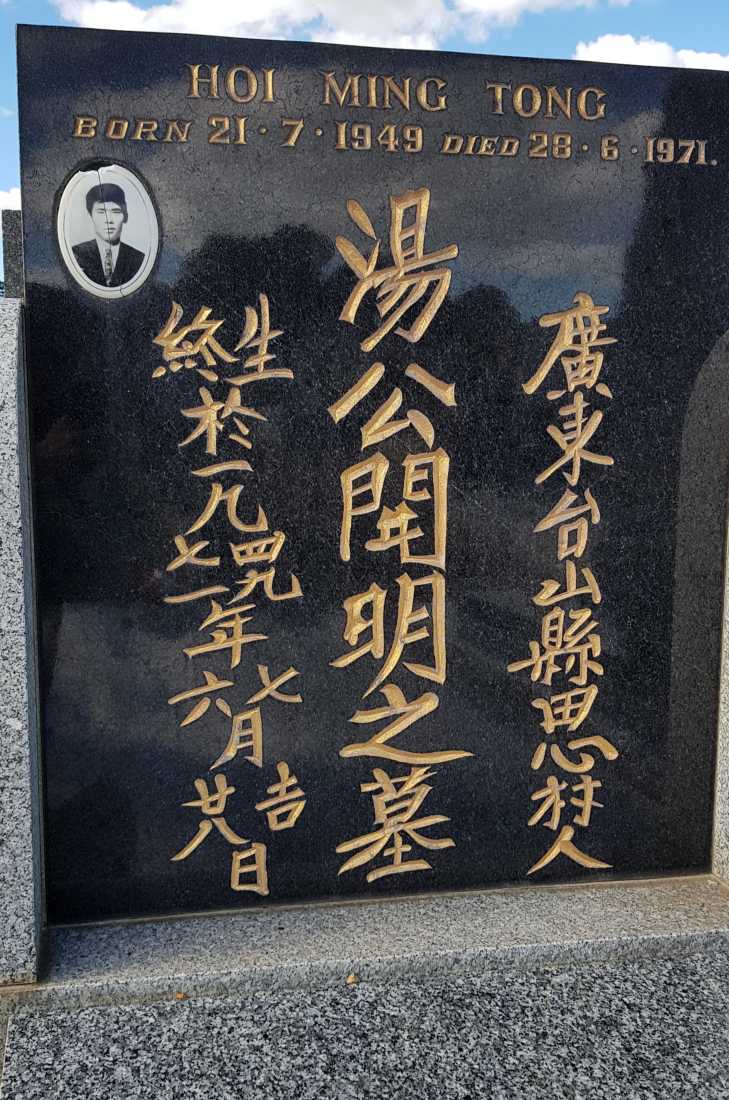 HOI MING TONG
BORN 21·7·1949 DIED 28·6·1971.
廣東台山縣思村人
湯公開明之墓
生終於一九四九七一年七六月吉廿八日